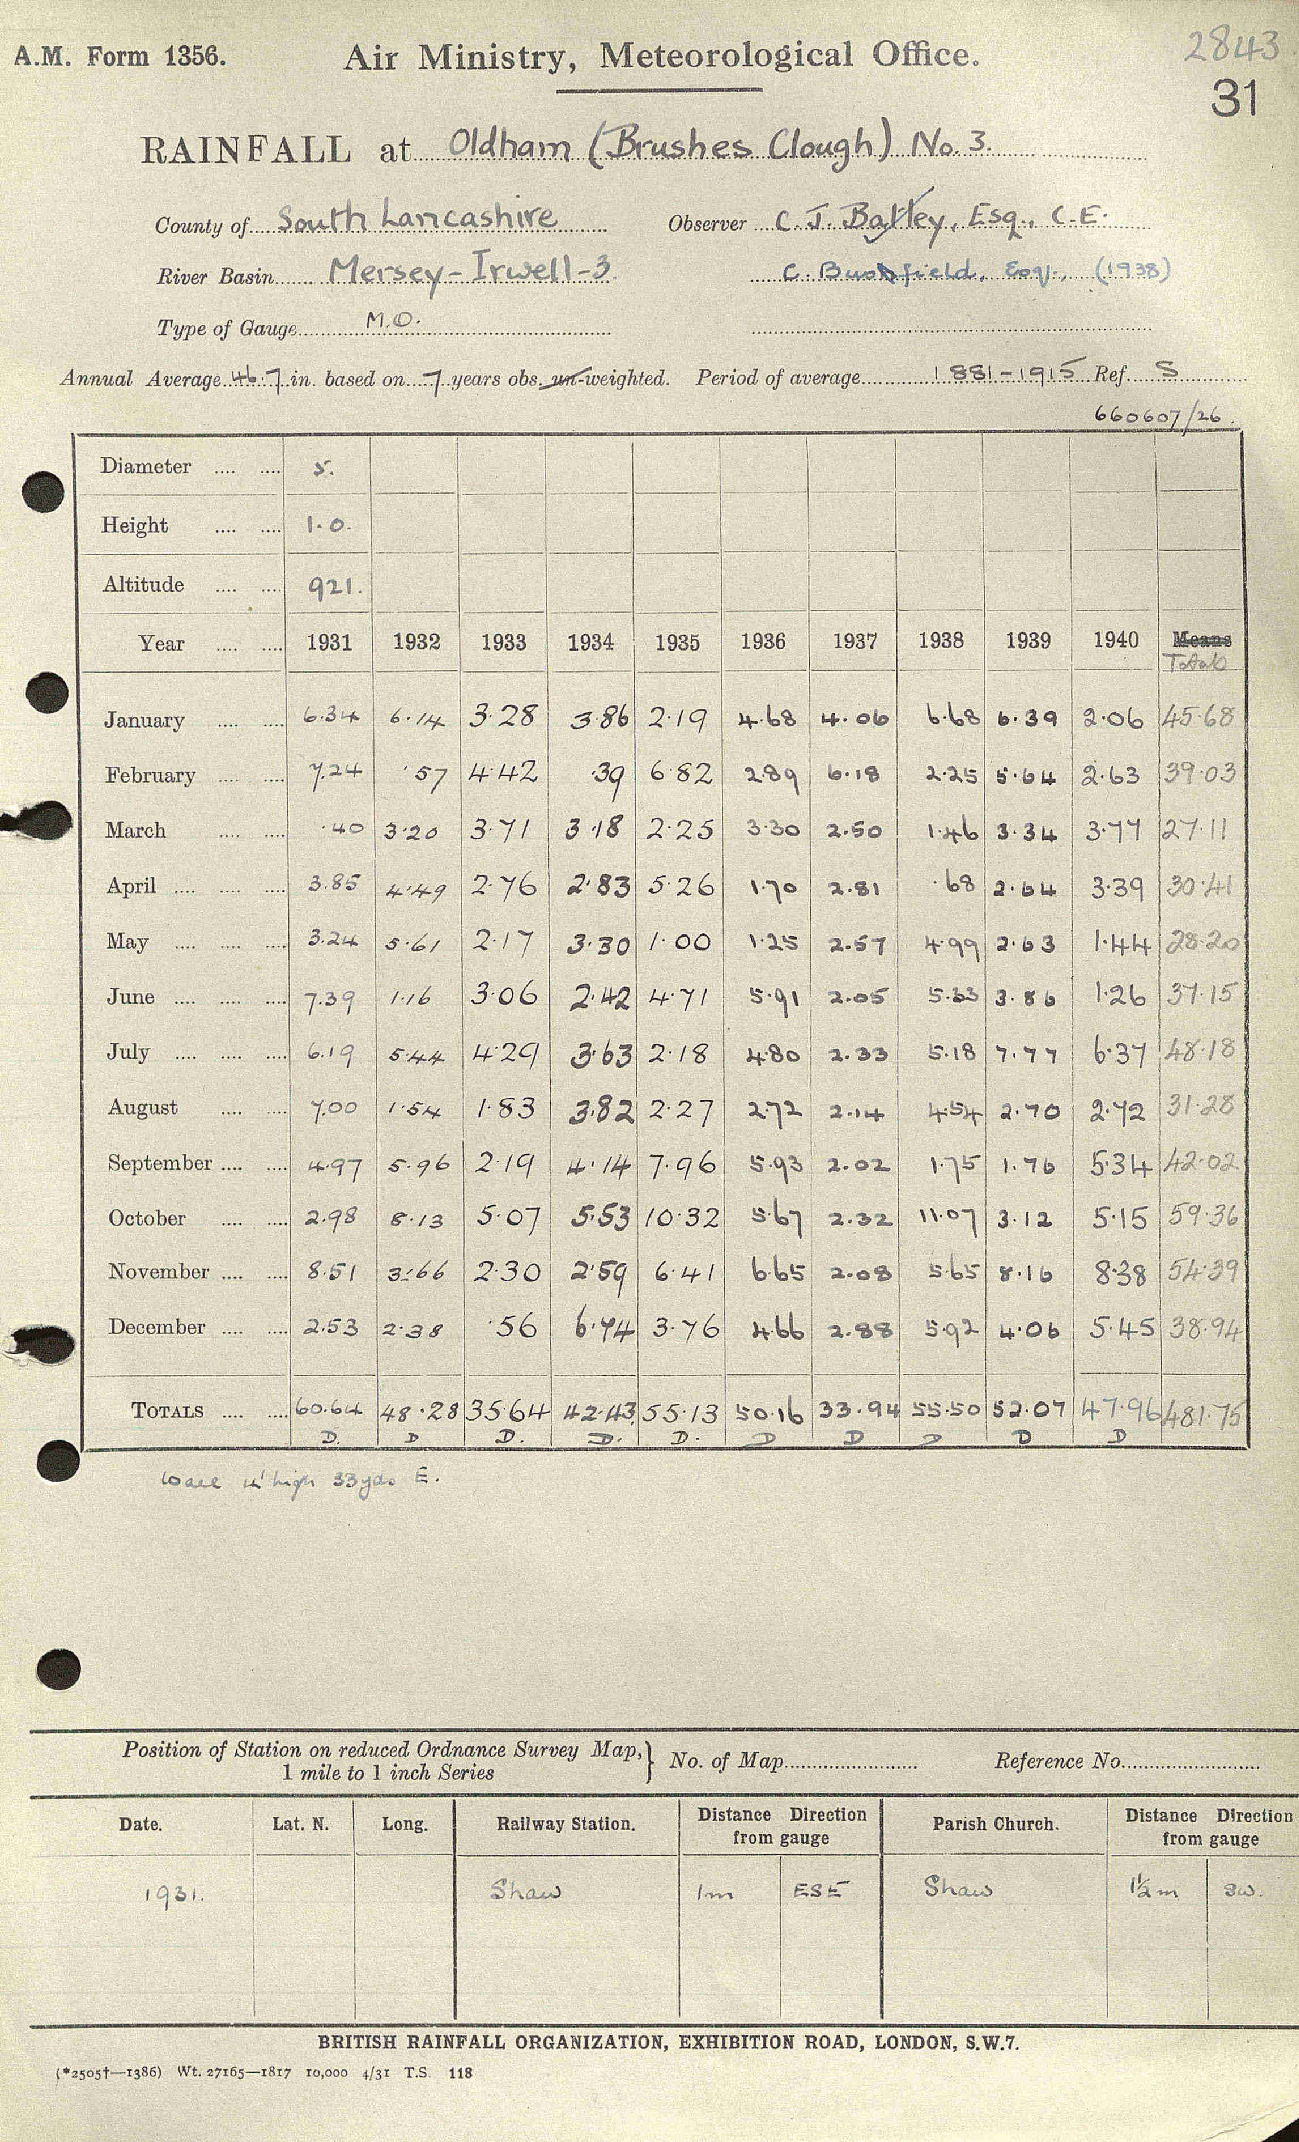 A.M. Form 1356. Air Ministry, Meteorological Office. 2843
31
RAINFALL at Oldham (Brushes Clough) No. 3.
County of South Lancashire Observer C. J. Batley, Esq., C.E.
River Basin Mersey-Irwell-3 C. Esq., (1938)
Type of Gauge M.O.
Annual Average 46.7 in. based on 7 years obs. un-weighted. Period of average 1881-1915 Ref. S
660607/26.
Diameter 5.
Height 1.0.
Altitude 921.
Year 1931 1932 1933 1934 1935 1936 1937 1938 1939 1940 Means
Totals
January 6.34 6.14 3.28 3.86 2.19 4.68 4.06 6.68 6.39 2.06 45.68
February 7.24 .57 4.42 .39 6.82 2.89 6.18 2.25 5.64 2.63 39.03
March .40 3.20 3.71 3.18 2.25 3.30 2.50 1.46 3.34 3.77 27.11
April 3.85 4.49 2.76 2.83 5.26 1.70 2.81 .68 2.64 3.39 30.41
May 3.24 5.61 2.17 3.30 1.00 1.25 2.57 4.99 2.63 1.44 28.20
June 7.39 1.16 3.06 2.42 4.71 5.91 2.05 5.33 3.86 1.26 37.15
July 6.19 5.44 4.29 3.63 2.18 4.80 2.33 5.18 7.77 6.37 48.18
August 7.00 1.54 1.83 3.82 2.27 2.72 2.14 4.54 2.70 2.72 31.28
September 4.97 5.96 2.19 4.14 7.96 5.93 2.02 1.75 1.76 5.34 42.02
October 2.98 8.13 5.07 5.53 10.32 5.67 2.32 11.07 3.12 5.15 59.36
November 8.51 3.66 2.30 2.59 6.41 6.65 2.08 5.65 8.16 8.38 54.39
December 2.53 2.38 .56 6.74 3.76 4.66 2.88 5.92 4.06 5.45 38.94
TOTALS 60.64 48.28 35.64 42.43 55.13 50.16 33.94 55.50 52.07 47.96 481.75
D. D D. D. D. D D D D D
Wall 4' high 33yds E.
Position of Station on reduced Ordnance Survey Map, } No. of Map Reference No.
1 mile to 1 inch Series
Date. Lat. N. Long. Railway Station. Distance Direction Parish Church. Distance Direction
from gauge from gauge
1931. Shaw 1m ESE Shaw 1½m SW.
BRITISH RAINFALL ORGANIZATION, EXHIBITION ROAD, LONDON, S.W.7.
(*2505†—1386) Wt. 27165—1817 10,000 4/31 T.S. 118